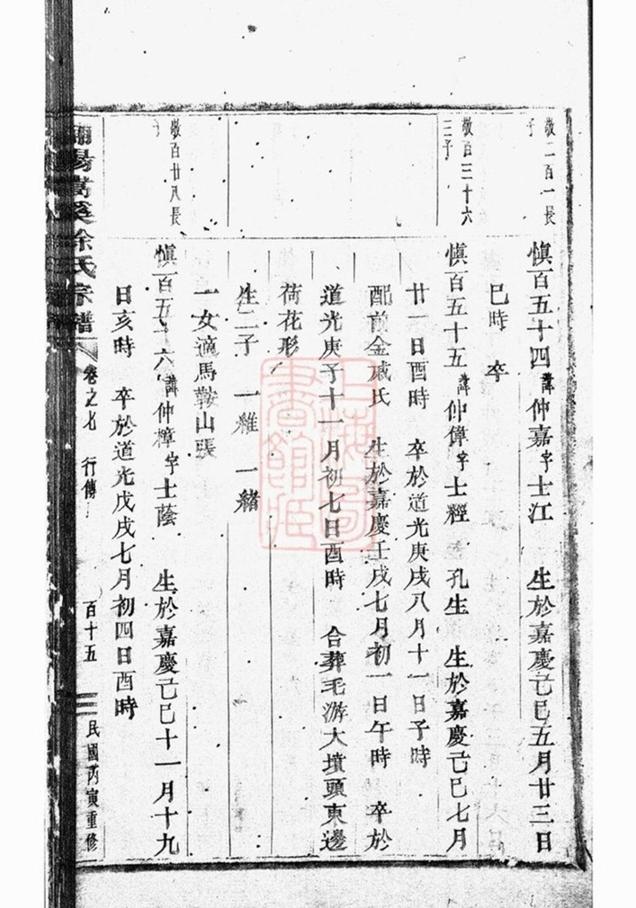 敬二百一長
子
慎百五十四諱仲嘉字士江 生於嘉慶己巳五月廿三日
巳時 卒
敬百三十六
三子
慎百五十五諱仲偉字士經 孔生 生於嘉慶己巳七月
廿一日酉時 卒於道光庚戌八月十一日子時
配前金戚氏 生於嘉慶壬戌七月初一日午時 卒於
道光庚子十一月初七日酉時 合葬毛游大墳頭東邊
荷花形
生二子 一維 一緒
一女適馬鞍山張
敬百廿八長
子
慎百五十六諱仲樟字士蔭 生於嘉慶己巳十一月十九
日亥時 卒於道光戊戌七月初四日酉時
陽嵩溪徐氏宗譜
卷之七 行傳
百十五
民國丙寅重修
上海圖書館藏